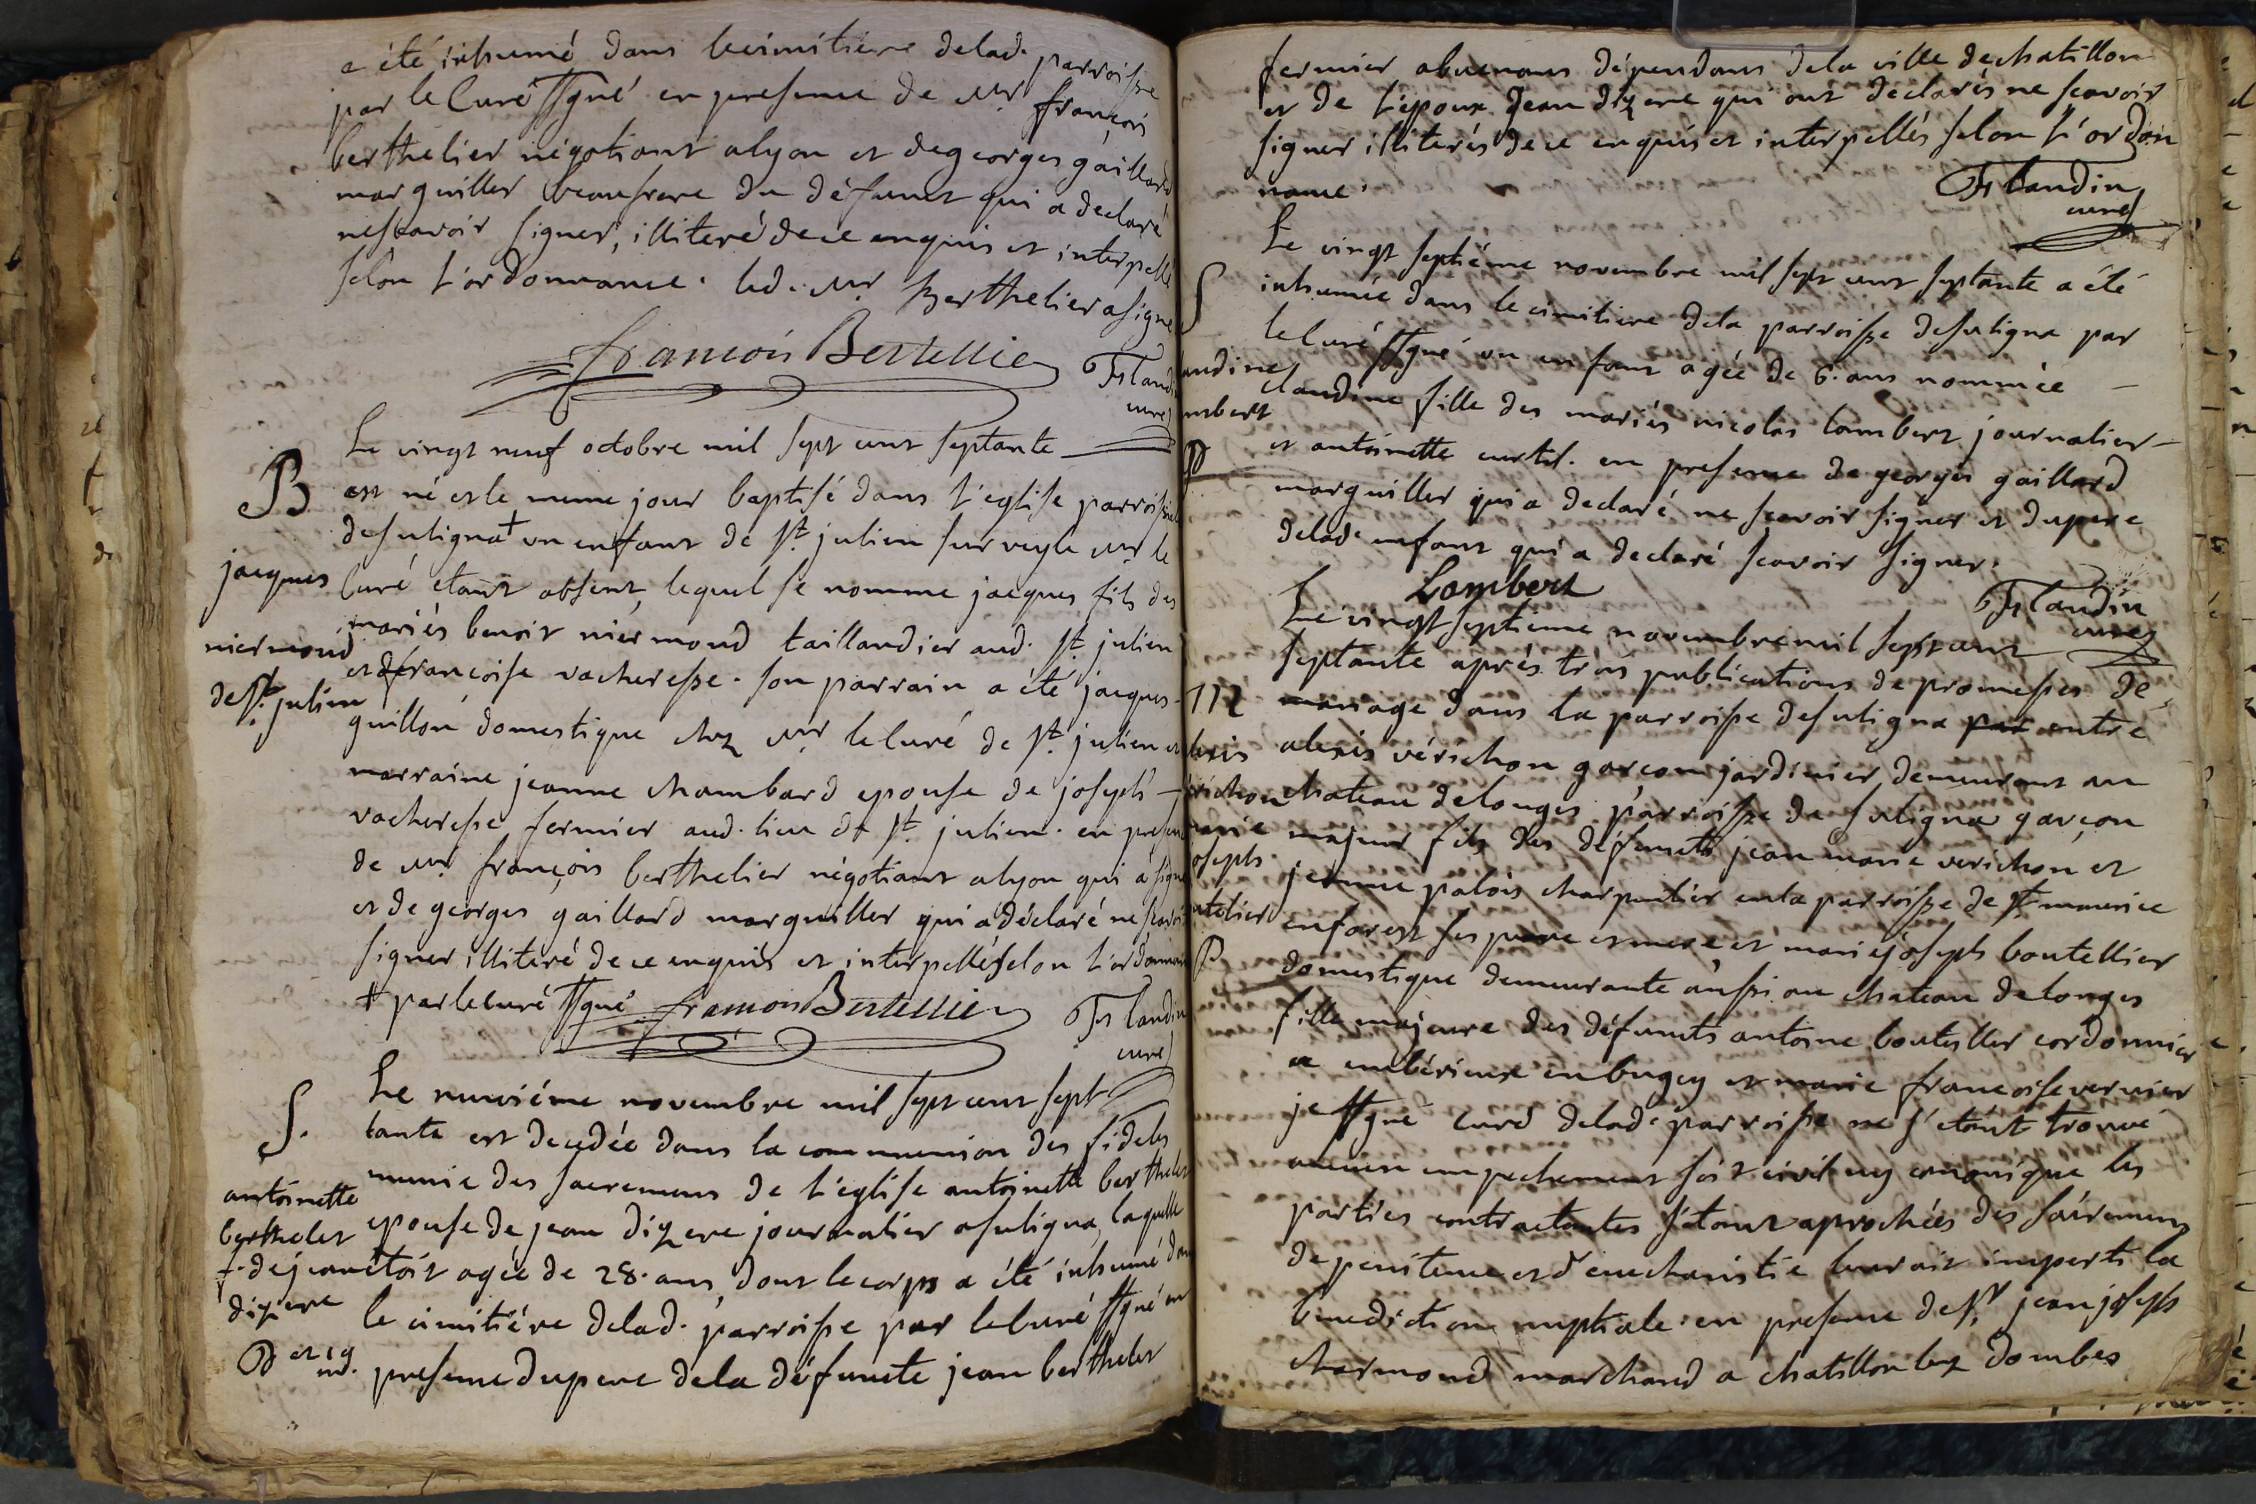 a été inhumé dans le cimitière de lad. parroisse
par le Curé ssgné en presence de Mr françois
berthelier négotiant a lyon et de georges gaillard
marguiller beaufrere du défunct qui a declaré
ne scavoir signer, illiteré de ce enquis et interpellé
selon l'ordonnance. led. Mr Berthelier a signé
francois Bertellie
Flandin
curé
B
Le vingt neuf octobre mil sept cent septante
est né et le meme jour baptisé dans l'eglise parroissiale
de suligna + un enfant de St. julien sur veyle Mr le
jacques
curé etant absent, lequel se nomme jacques fils des
niermond
mariés benoit niermond taillandier aud. St. julien
de St. julien
et françoise vacheresse. son parrain a été jacques
guillon domestique chez Mr le curé de St. julien et
marraine jeanne chambard epouse de joseph
vacheresse fermier aud. lieu de St. julien. en presence
de Mr françois berthelier négotiant a lyon qui a signé
et de georges gaillard marguiller qui a déclaré ne scavoir
signer illiteré de ce enquis et interpellé selon l'ordonnance
+ par le curé ssgné francois Bertellie
Flandin
curé
S.
Le neuviéme novembre mil sept cent sept
tante est decedée dans la communion des fideles
antoinette
munie des sacremens de l'eglise antoinette berthelet
berthelet
epouse de jean dizere journalier a suligna, laquelle
f. de jean
etoit agée de 28. ans, dont le corps a été inhumé dans
dizere
le cimitiére de lad. parroisse par le curé ssgné en
presence du pere de la défuncte jean berthelet
fermier dépendans de la ville de chatillon
et de l'epoux jean dizere qui ont declarés ne scavoir
signer illiterés de ce enquis et interpellés selon l'ordon
nance.
Flandin
curé
S
Le vingt septiéme novembre mil sept cent septante a été
inhumée dans le cimitiere de la parroisse de suligna par
le curé ssgné un enfant agée de 6. ans nommée
claudine
lambert
claudine fille des mariés nicolas lambert journalier
et antoinette curtil. en presence de georges gaillard
marguiller qui a declaré ne scavoir signer et du pere
delad. enfant qui a declaré scavoir signer.
Lambert
Flandin
curé
Le vingt septieme novembre mil sept cent
septante après trois publications de promesses de
M
mariage dans la parroisse de suligna par entre
alexis
alexis vérichon garçon jardinier demeurant au
vérichon
chateau de longes parroisse de suligna garçon
marie
majeur fils des défuncts jean marie verichon et
joseph
jeanne palois charpentier en la parroisse de St maurice
en forest ses pere et mere, et marie joseph boutellier
domestique demeurante aussi au chateau de longes
fille majeure des défuncts antoine boutellier cordonnier
a embérieux en bugey et marie francoise vernier
je ssgné curé delad. parroisse ne s'etant trouvé
aucun empechement soit civil ny canonique les
parties contractantes s'etant aprochées des sacremens
de penitence et d'eucharistie leur ait imparti la
benediction nuptiale en presence de Sr. jean joseph
charmond marchand a chatillon lez dombes